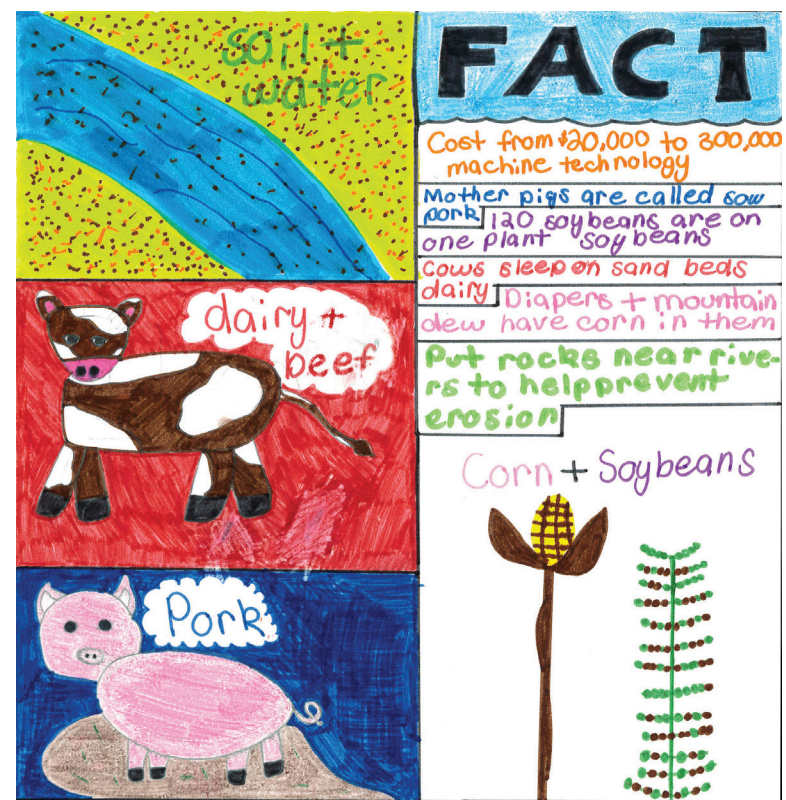 soil +
water
dairy +
beef
Pork
FACT
Cost from $20,000 to 300,000
machine technology
Mother pigs are called sow
pork
120 soybeans are on
one plant soybeans
Cows sleep on sand beds
dairy
Diapers + mountain
dew have corn in them
Put rocks near rive-
rs to help prevent
erosion
Corn + Soybeans